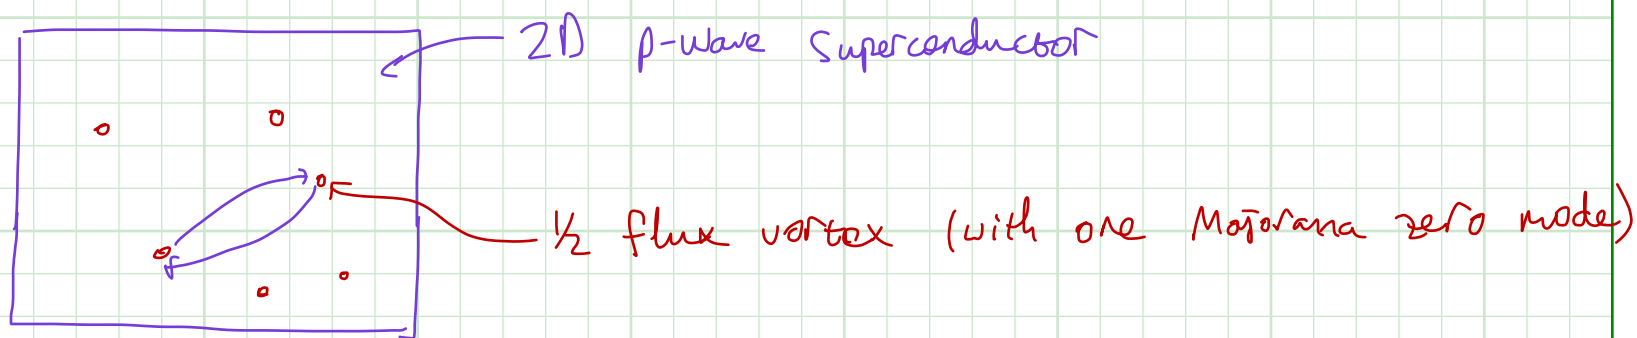 2D p-wave Superconductor
½ flux vortex (with one Majorana zero mode)